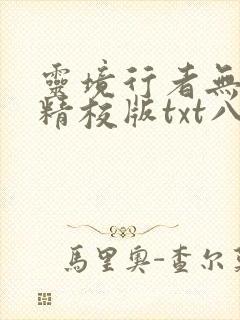 靈境行者無
精校版txt八
馬里奧-查尔